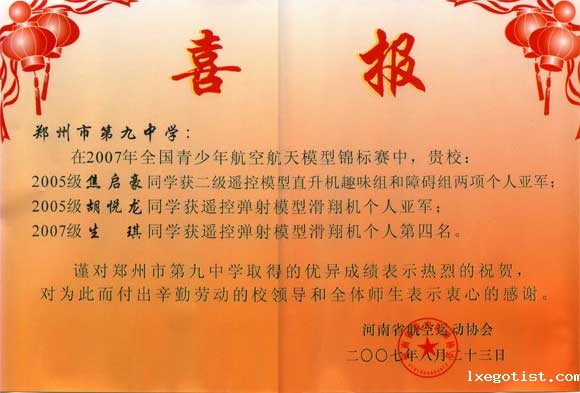 喜报
郑州市第九中学：
在2007年全国青少年航空航天模型锦标赛中，贵校：
2005级焦启豪同学获二级遥控模型直升机趣味组和障碍组两项个人亚军；
2005级胡悦龙同学获遥控弹射模型滑翔机个人亚军；
2007级生 琪同学获遥控弹射模型滑翔机个人第四名。
谨对郑州市第九中学取得的优异成绩表示热烈的祝贺，
对为此而付出辛勤劳动的校领导和全体师生表示衷心的感谢。
河南省航空运动协会
二〇〇七年八月二十三日
www.lxegotist.com